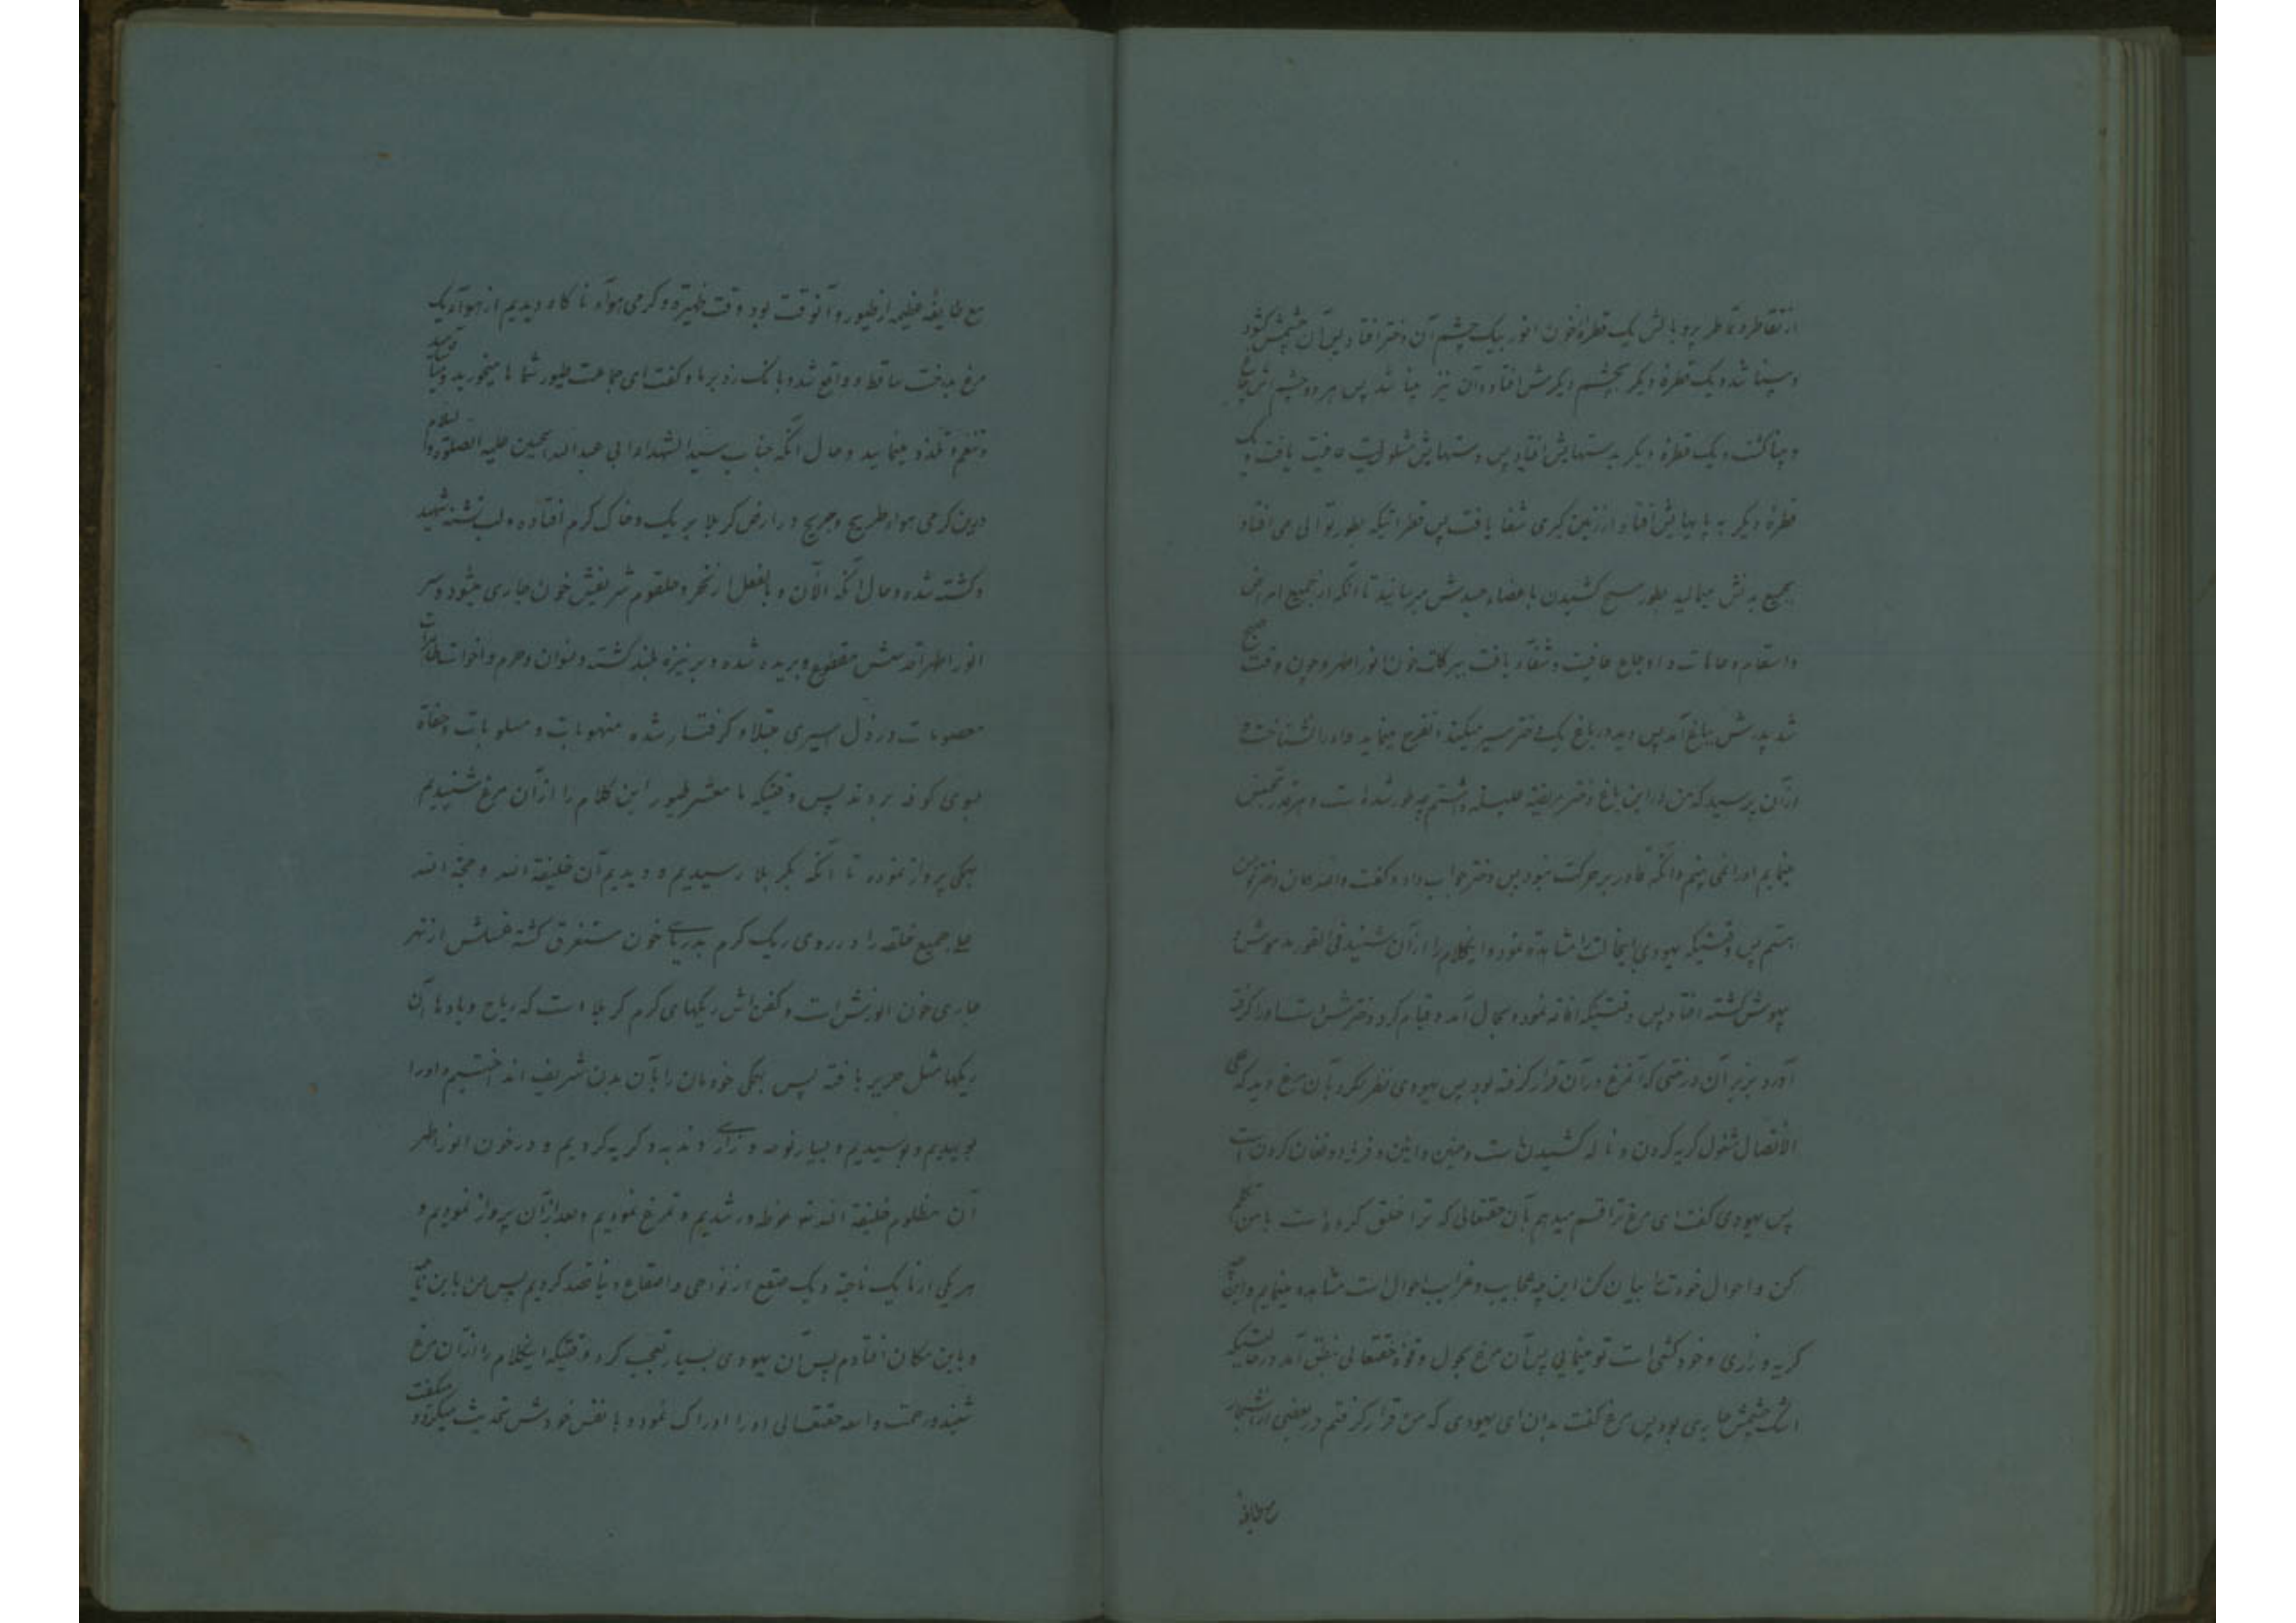 از تقاطر و تاطر پر و بالش یک قطرۀ خون انور بیک چشم آن دختر افتاد پس آن چشمش گشود
و بینا شد و یک قطرۀ دیگر بچشم دیگرش افتاد و آن نیز بینا شد پس هر دو چشم اش
و بینا گشت و یک قطرۀ دیگر بدستهایش افتاد پس دستهایش عافیت یافت و یک
قطرۀ دیگر به پاهایش افتاد از زمین گیری شفا یافت پس قطراتیکه بطور توالی می افتاد
بجمیع بدنش میمالید بطور مسح کشیدن باعضاء جسدش میرسانید تا آنکه از جمیع امراض
و اسقام و عاهات و اوجاع عافیت و شفاء یافت ببرکات خون انور اطهر و چون وقت صبح
شد پدرش بباغ آمد پس دید در باغ یک دختر سیر میکند و تفرج مینماید و او را نشناخت و
از آن پرسید که من در این باغ دختر مریضه علیله داشتم چطور شده است و هر قدر تفحص
مینمایم او را نمی بینم و آنکه قادر بر حرکت نبود پس دختر جواب داد و گفت والله من دختر تو
هستم پس وقتیکه یهودی اینحالت را مشاهده نمود و اینکلام را از آن شنید فی الفور مدهوش و
بیهوش گشته افتاد پس وقتیکه افاقه نمود و بحال آمد و قیام کرد دخترش دست او را گرفته
آورد بزیر آن درختی که آنمرغ در آن قرار گرفته بود پس یهودی نظر کرد بآن مرغ دید که علی
الاتصال مشغول گریه کردن و ناله کشیدن است و حنین و انین و فریاد و فغان کردن است
پس یهودی گفت ای مرغ ترا قسم میدهم بآن حقتعالی که ترا خلق کرده است با من تکلم
کن و احوال خودت را بیان کن این چه عجایب و غرایب احوال است مشاهده مینمایم و این چه
گریه و زاری و خودکشی است تو مینمایی پس آن مرغ بحول و قوۀ حقتعالی بنطق آمد در حالتیکه
اشک چشمش جاری بود پس مرغ گفت بدان ای یهودی که من قرار گرفتم در بعضی از اشجار
مع طایفۀ
مع طایفۀ عظیمه از طیور و آنوقت بود وقت ظهیره و گرمی هوآء ناگاه دیدیم از هوآء یک
مرغ بدفت ساقط و واقع شد و بانگ زد بر ما و گفت ای جماعت طیور شماها میخورید و میآشامید
و تنعم و تلذذ مینمایید و حال آنکه جناب سید الشهداء ابی عبد الله الحسین علیه الصلوة و السلام
درین گرمی هوا طریح و جریح در ارض کربلا بر ریگ و خاک گرم افتاده و لب تشنه شهید
و کشته شده و حال آنکه الآن و بالفعل از نحر و حلقوم شریفش خون جاری میشود و سر
انور اطهر اقدسش مقطوع و بریده شده و بر نیزه بلند گشته و نسوان و حرم و اخوات طاهرات
معصومات در ذل اسیری مبتلا و گرفتار شده منهوبات و مسلوبات حفاة
بسوی کوفه بردند پس وقتیکه ما معشر طیور این کلام را از آن مرغ شنیدیم
همگی پرواز نموده تا آنکه بکربلا رسیدیم و دیدیم آن خلیفة الله و حجة الله
علی جمیع خلقه را در روی ریگ گرم بدریای خون مستغرق گشته غسلش از نهر
جاری خون انورش است و کفن اش ریگهای گرم کربلا است که ریاح و بادها آن
ریگها مثل حریر بافته پس همگی خودمان را بآن بدن شریف انداختیم و او را
بوییدیم و بوسیدیم و بسیار نوحه و زاری و ندبه و گریه کردیم و در خون انور اطهر
آن مظلوم خلیفة الله غوطه ور شدیم و تمرغ نمودیم و بعد از آن پرواز نمودیم و
هر یکی از ما یک ناحیة و یک صقع از نواحی و اصقاع دنیا قصد کردیم پس من باین ناحیه
و باین مکان افتادم پس آن یهودی بسیار تعجب کرد وقتیکه اینکلام را از آن مرغ
شنید و رحمت واسعه حقتعالی او را ادراک نمود و با نفس خودش تحدیث میکرد و میگفت